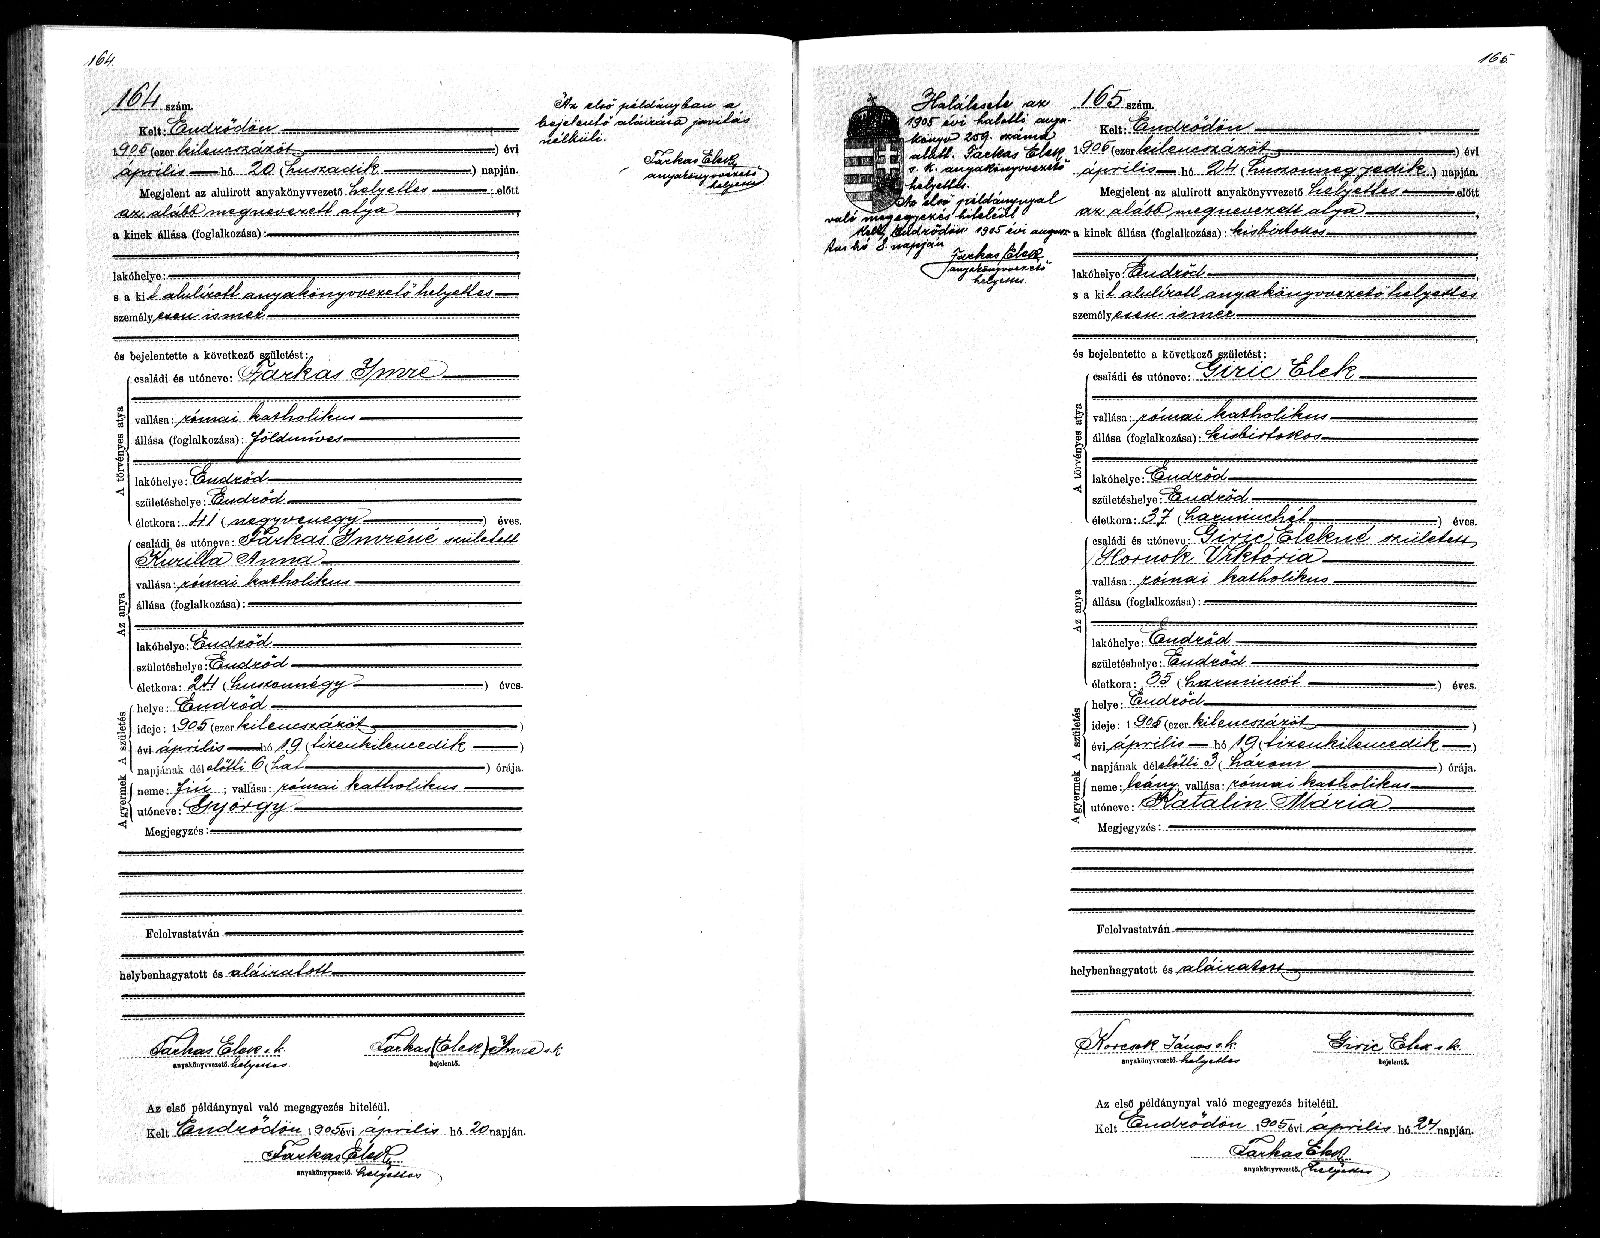 164.
164 szám.
Kelt: Endrődön
1905 (ezer kilenczázöt) évi
április hó 20 (huszadik) napján.
Megjelent az alulirott anyakönyvvezető helyettes előtt
az alább megnevezett atya
a kinek állása (foglalkozása):
lakóhelye:
s a kit alulírott anyakönyvvezető helyettes
személyesen ismer
és bejelentette a következő születést:
A törvényes atya
családi és utóneve: Farkas Imre
vallása: római katholikus
állása (foglalkozása): földmíves
lakóhelye: Endrőd
születéshelye: Endrőd
életkora: 41 (negyvenegy) éves.
Az anya
családi és utóneve: Farkas Imréné született
Kurilla Anna
vallása: római katholikus
állása (foglalkozása):
lakóhelye: Endrőd
születéshelye: Endrőd
életkora: 24 (huszonnégy) éves.
A születés
helye: Endrőd
ideje: 1905 (ezer kilenczázöt)
évi április hó 19 (tizenkilencedik)
napjának délelőtti 6 (hat) órája.
A gyermek
neme: fiú; vallása: római katholikus
utóneve: György
Megjegyzés:
Felolvastatván
helybenhagyatott és aláiratott
Farkas Elek s. k.
anyakönyvvezető. helyettes
Farkas (Elek) Imre s. k.
bejelentő.
Az első példánynyal való megegyezés hiteléül.
Kelt Endrődön 1905 évi április hó 20 napján.
Farkas Elek
anyakönyvvezető. helyettes
Az első példányban a
bejelentő aláírása javítás
nélküli.
Farkas Elek
anyakönyvvezető
helyettes
165
Halálesete az
1905 évi halotti anya-
könyv 259. száma
alatt. Farkas Elek
s. k. anyakönyvvezető
helyettes.
Az első példánynyal
való megegyezés hiteléül
Kelt, Endrődön 1905 évi augusz-
tus hó 8. napján
Farkas Elek
anyakönyvvezető
helyettes.
165 szám.
Kelt: Endrődön
1905 (ezer kilenczázöt) évi
április hó 24 (huszonnegyedik) napján.
Megjelent az alulirott anyakönyvvezető helyettes előtt
az alább megnevezett atya
a kinek állása (foglalkozása): kisbirtokos
lakóhelye: Endrőd
s a kit alulírott anyakönyvvezető helyettes
személyesen ismer
és bejelentette a következő születést:
A törvényes atya
családi és utóneve: Giric Elek
vallása: római katholikus
állása (foglalkozása): kisbirtokos
lakóhelye: Endrőd
születéshelye: Endrőd
életkora: 37 (harminchét) éves.
Az anya
családi és utóneve: Giric Elekné született
Hornok Viktória
vallása: római katholikus
állása (foglalkozása):
lakóhelye: Endrőd
születéshelye: Endrőd
életkora: 35 (harmincöt) éves.
A születés
helye: Endrőd
ideje: 1905 (ezer kilenczázöt)
évi április hó 19 (tizenkilencedik)
napjának délelőtti 3 (három) órája.
A gyermek
neme: leány, vallása: római katholikus
utóneve: Katalin Mária
Megjegyzés:
Felolvastatván
helybenhagyatott és aláiratott
Korcsok János s. k.
anyakönyvvezető. helyettes
Giric Elek s. k.
bejelentő.
Az első példánynyal való megegyezés hiteléül.
Kelt Endrődön 1905 évi április hó 24 napján.
Farkas Elek
anyakönyvvezető. helyettes